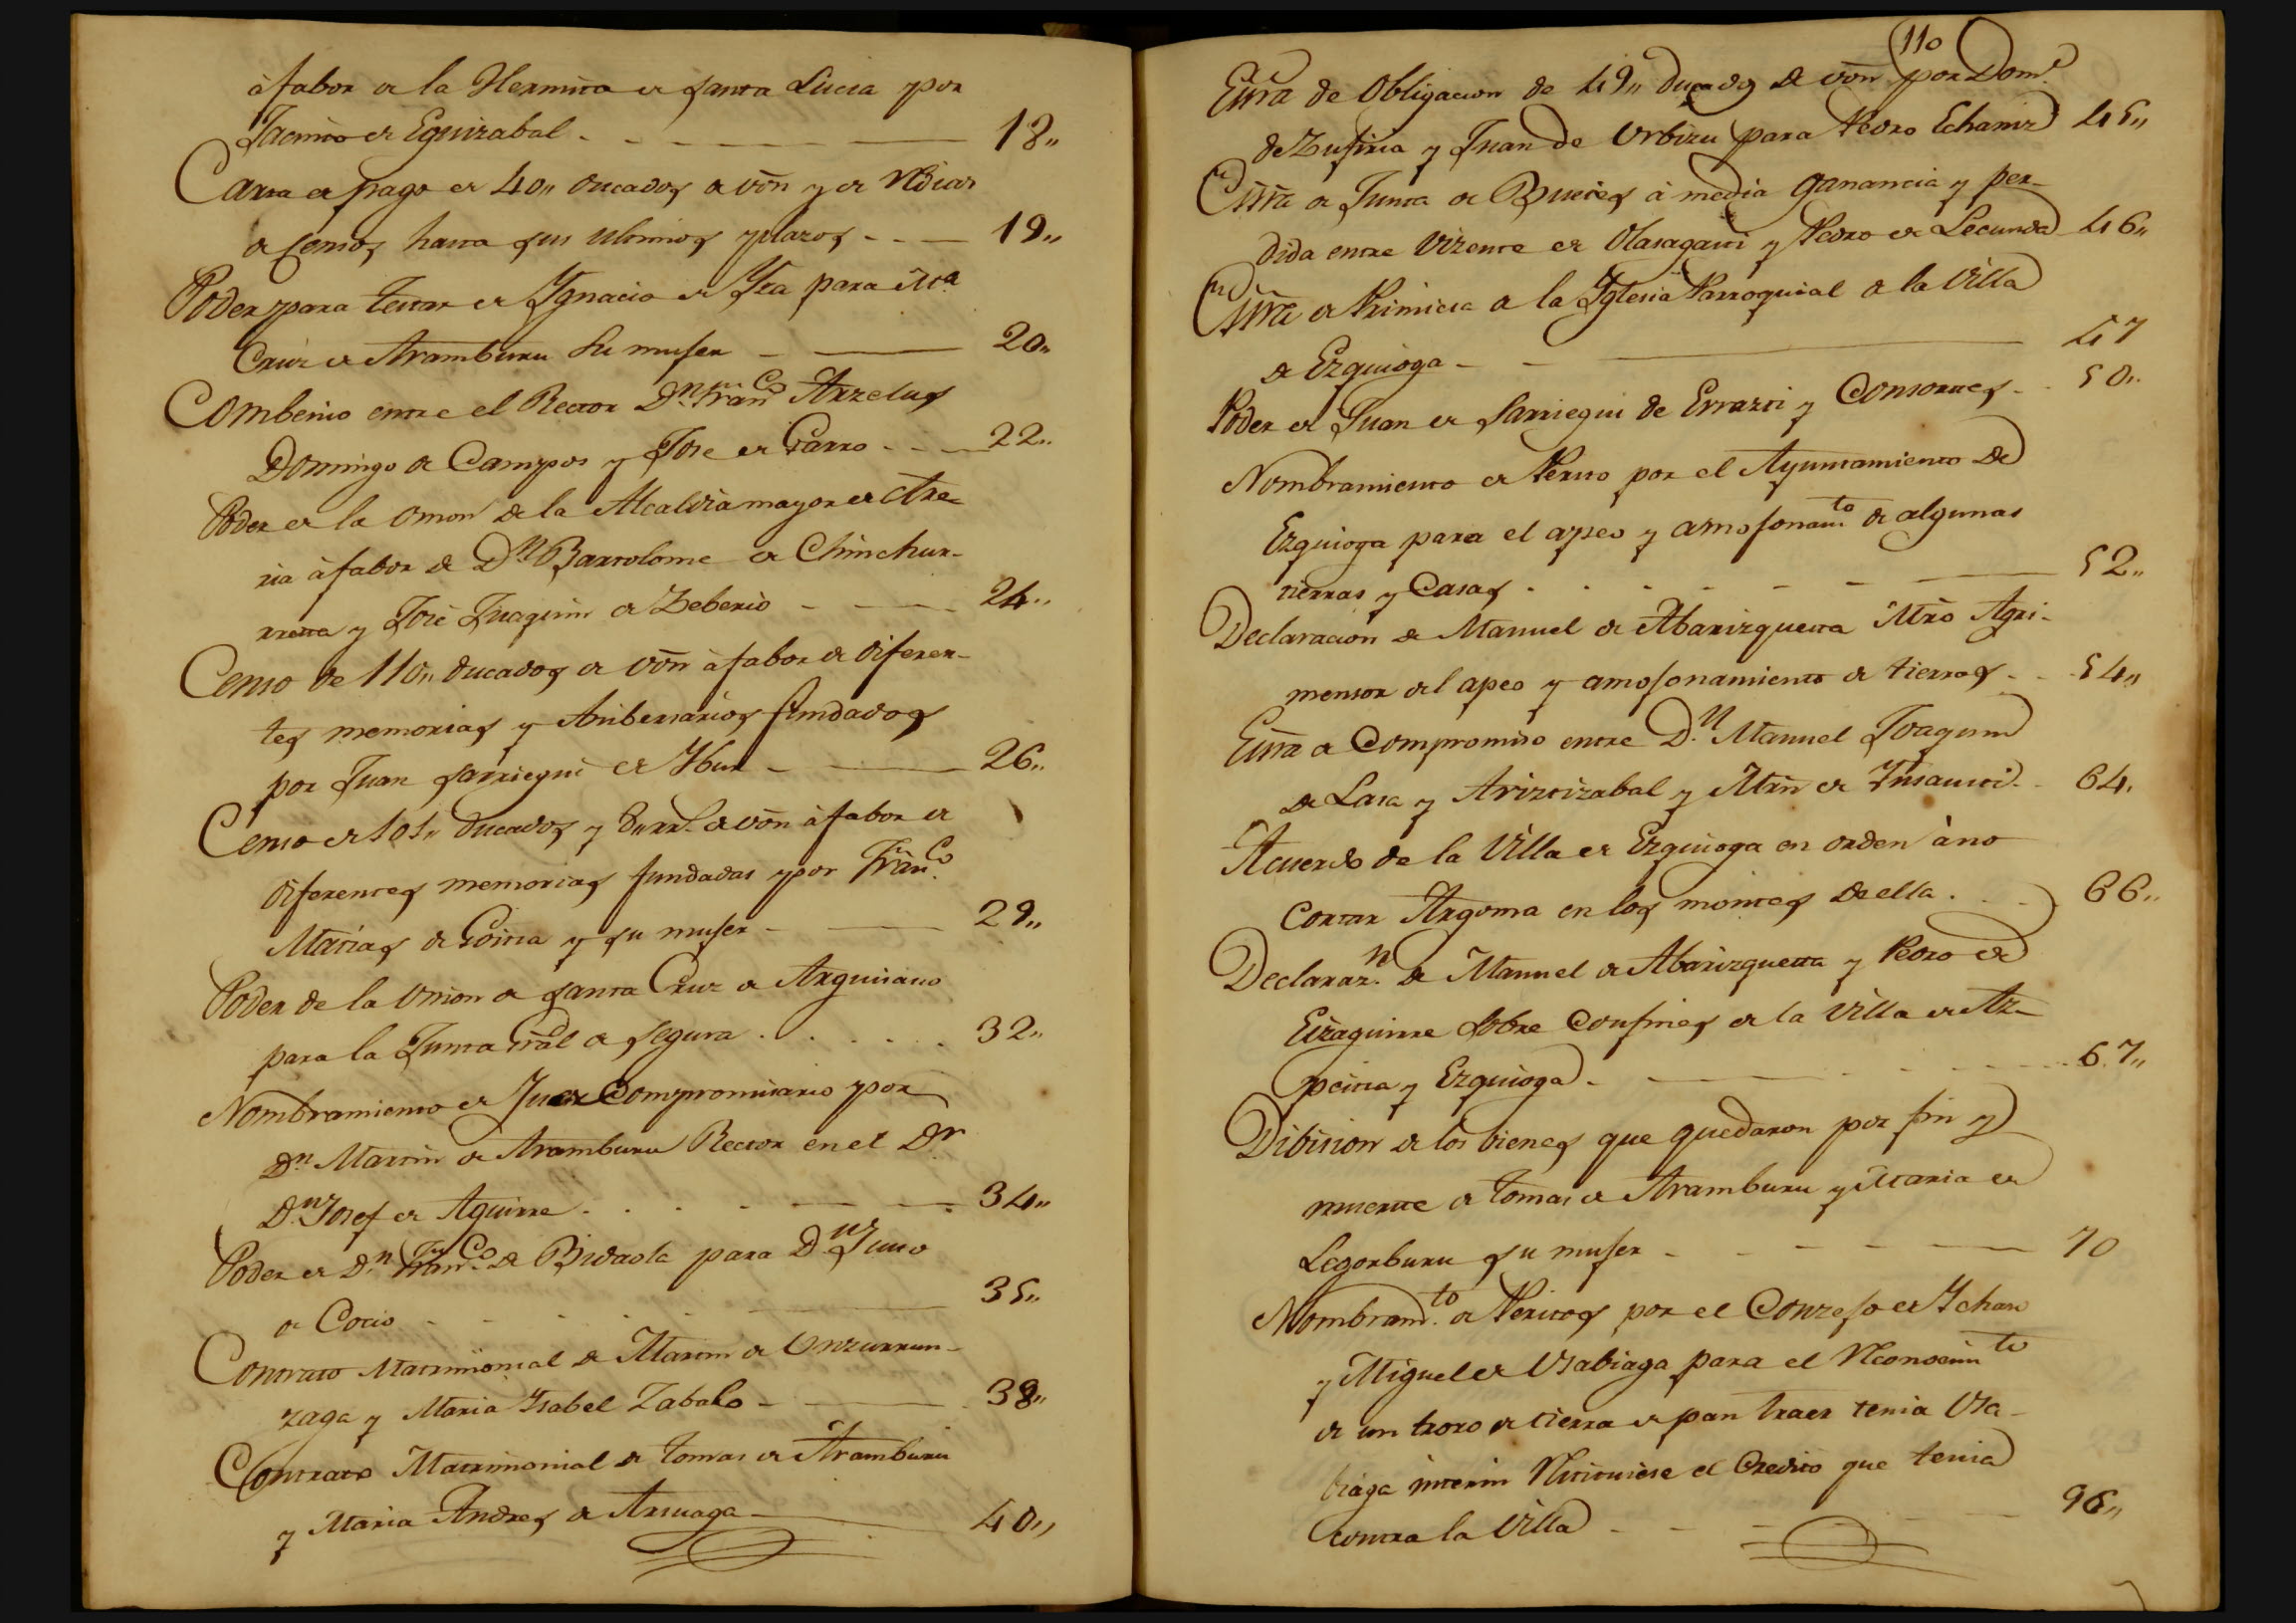 à fabor de la Hermita de santa Lucia por
Jacinto de Eguizabal - - - - 18,,
Carta de pago de 40,, ducados de vōn y de Rēdictos
de censos hasta sus ultimos plazos - - - 19,,
Poder para testar de Ygnacio de Yza para Mª
Cruz de Aramburu su muger - - 20,,
Combenio entre el Rector Dn. Franco Arzelus
Domingo de Campos y Jose de Garro - - - 22,,
Poder de la Union de la Alcaldia mayor de Are-
ria à fabor de Dn Bartolome de Chinchur-
rreta y José Juaquin de Zeberio - - - 24,,
Censo de 110,, ducados de vōn à fabor de diferen-
tes memorias y Anibersarios fundados
por Juan Sarriegui de Ybur - - 26,,
Censo de 101,, ducados y 8,, rrs. de vōn à fabor de
diferentes memorias fundadas por Franco.
Matias de Goitia y su muger - - 29,,
Poder de la Union de santa Cruz de Arguisano
para la Junta Gral de Segura . . . . . 32,,
Nombramiento de Juez Compromisario por
Dn Martin de Aramburu Rector en el Dr
Dn. Josef de Aguirre . . . - - - 34,,
Poder de Dn. Franco. de Bidaola para Dn. Justo
de Cocio - - - - 35,,
Contrato Matrimonial de Martin de Unzurrun-
zaga y Maria Ysabel Zabalo - - 38,,
Contrato Matrimonial de Tomas de Aramburu
y Maria Andres de Arsuaga - 40,,
110
Esrra de Obligacion de 49,, ducados de vōn por Domo.
de Zufiria y Juan de Urbizu para Pedro Echaniz 45,,
Esrra de Junta de Bueies à media ganancia y per-
dida entre Vizente de Olasagasti y Pedro de Lecunda 46,,
Esrra de Primicia de la Yglesia Parroquial de la Villa
de Ezquioga - - 47
Poder de Juan de Sarriegui de Errazti y Consortes - - 50,,
Nombramiento de Perito por el Ayuntamiento de
Ezquioga para el apeo y amojonamto de algunas
tierras y Casas . . . - - - 52,,
Declaracion de Manuel de Abarizqueta Mrō Agri-
mensor del apeo y amojonamiento de tierras - - 54,,
Esrra de Compromiso entre Dn. Manuel Joaquin
de Lasa y Ariztizabal y Mrīn de Ynsausti - - 64,
Acuerdo de la Villa de Ezquioga en orden à no
cortar Argoma en los montes de ella . . . 66,,
Declarazn. de Manuel de Abarizqueta y Pedro de
Eizaguirre sobre Confines de la Villa de Az-
peitia y Ezquioga - - - - 67,,
Dibision de los bienes que quedaron por fin y
muerte de Tomas de Aramburu y Maria de
Legorburu su muger - - - - 70
Nombramto. de Peritos por el Conzejo de Ychaso
y Miguel de Usabiaga para el Rēconosimto
de un trozo de tierra de pan traer tenia Usa-
biaga interin Rēstituiese el Credito que tenia
contra la Villa - - - - - 96,,